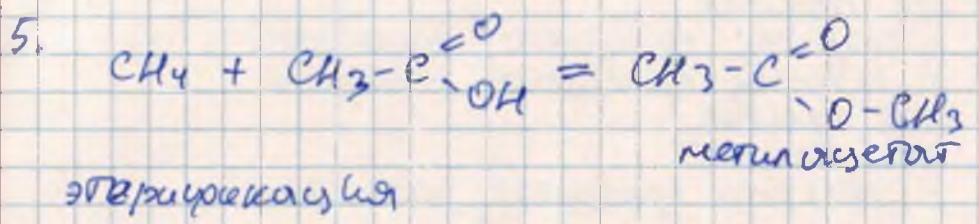 5.
CH4 + CH3-C=O-OH = CH3-C=O-O-CH3
метилацетат
этерификация